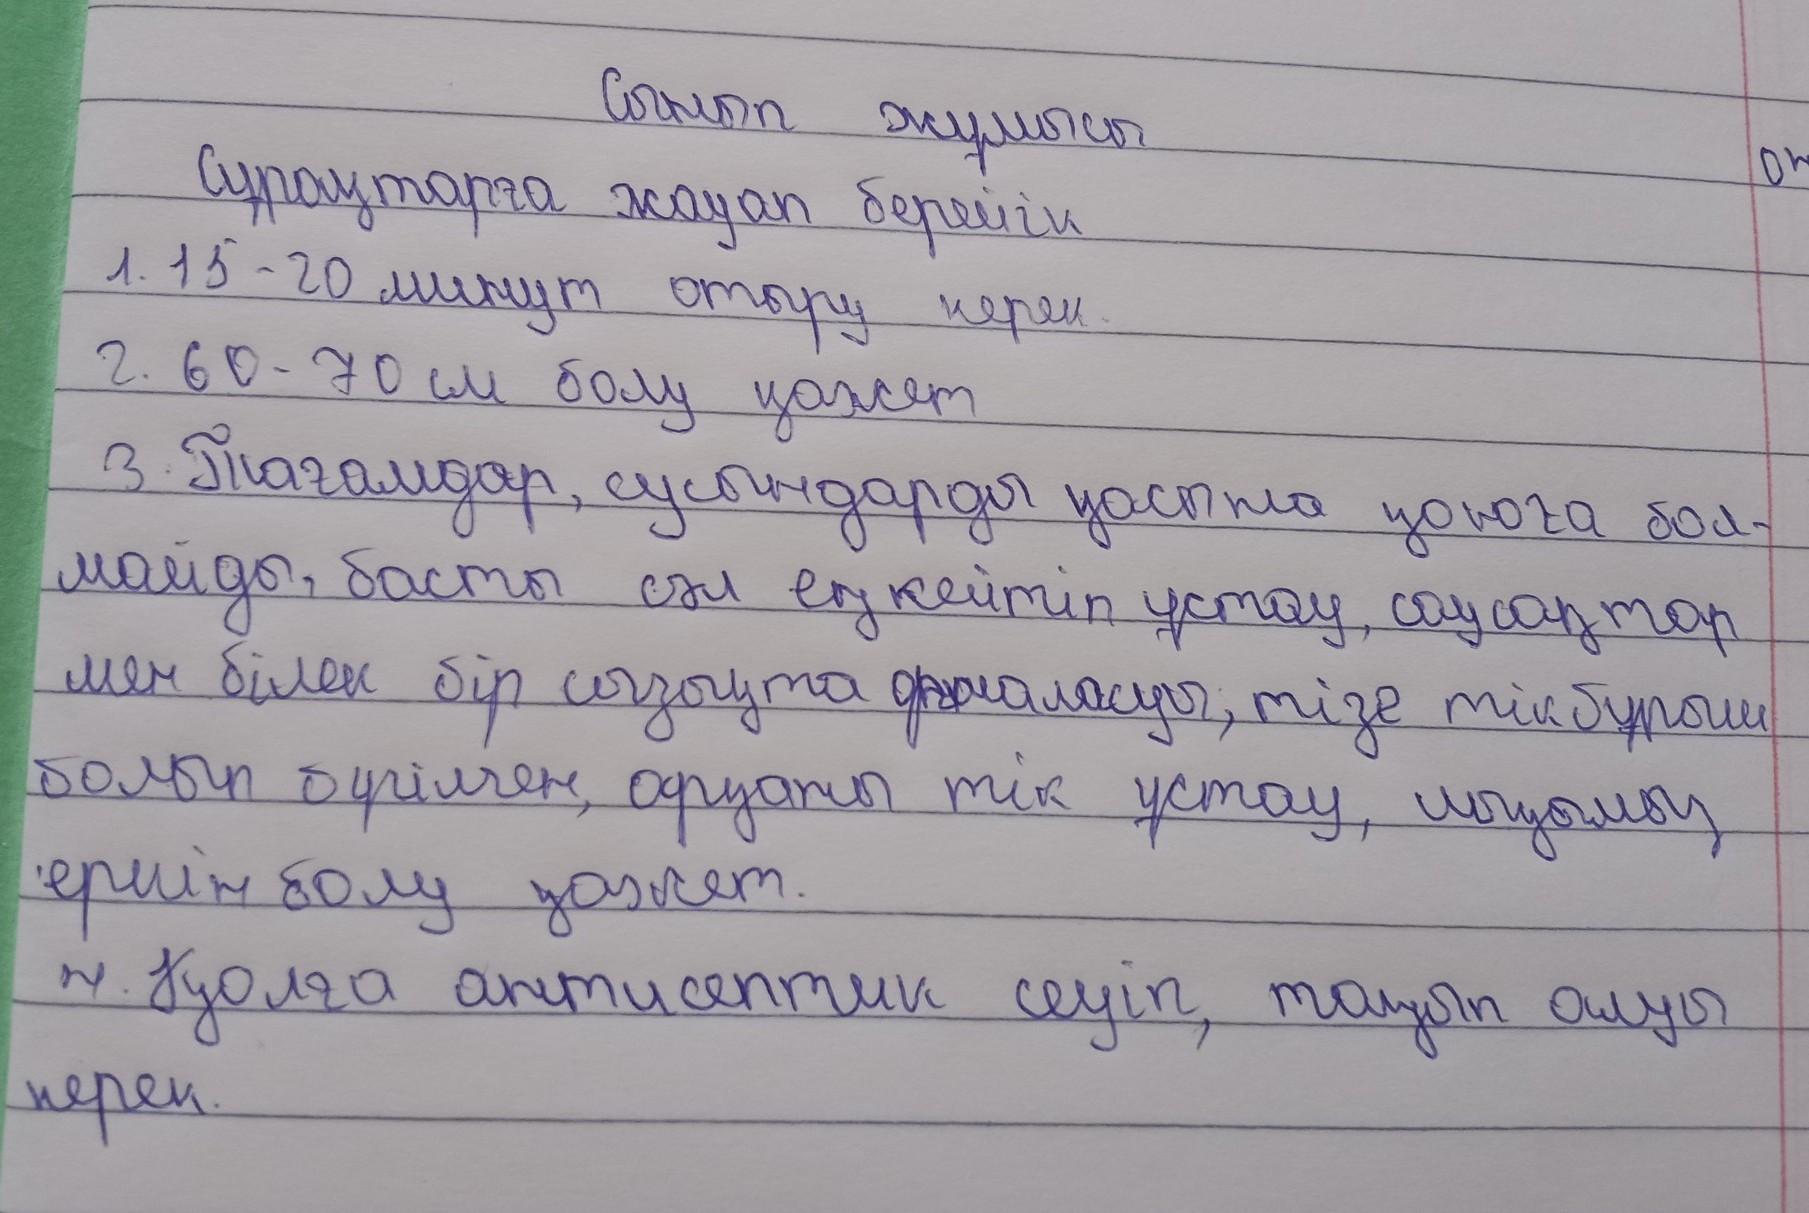 Сынып жұмысы
Сұрақтарға жауап берейік
1. 15-20 минут отыру керек.
2. 60-70 см болу қажет
3. Тағамдар, сусындарды қастына қоюға бол-
майды, басты сәл еңкейтіп ұстау, саусақтар
мен білек бір сызықта орналасуы, тізе тікбұрыш
болып бүгілген, арқаны тік ұстау, иығымың
еркін болу қажет.
4. Қолға антисептик сеуіп, тазып алуы
керек.
от